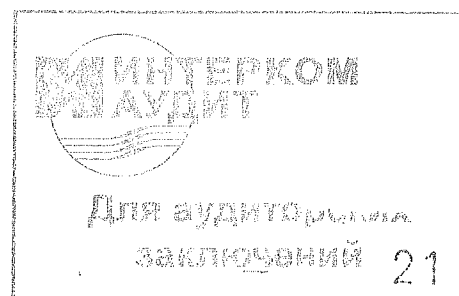 ИНТЕРКОМ
АУДИТ
Для аудиторских
заключений 21